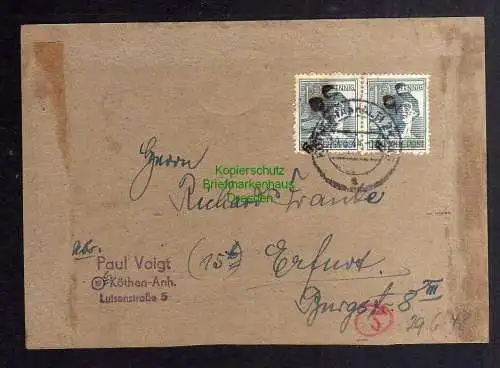 PFENNIG
PFENNIG
DEUTSCHE POST
Herrn
Kopierschutz
Briefmarkenhaus
Dresden
Richard Franke
Abs.
Paul Voigt
Köthen-Anh.
Luisenstraße 5
(15b) Erfurt
Burgstr. 8 III
5
29.6.48